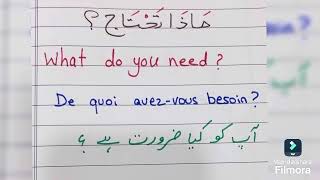 مَاذَا تَحْتَاج ؟
What do you need ?
De quoi avez-vous besoin ?
آپ کو کیا ضرورت ہے ؟
Wondershare
Filmora